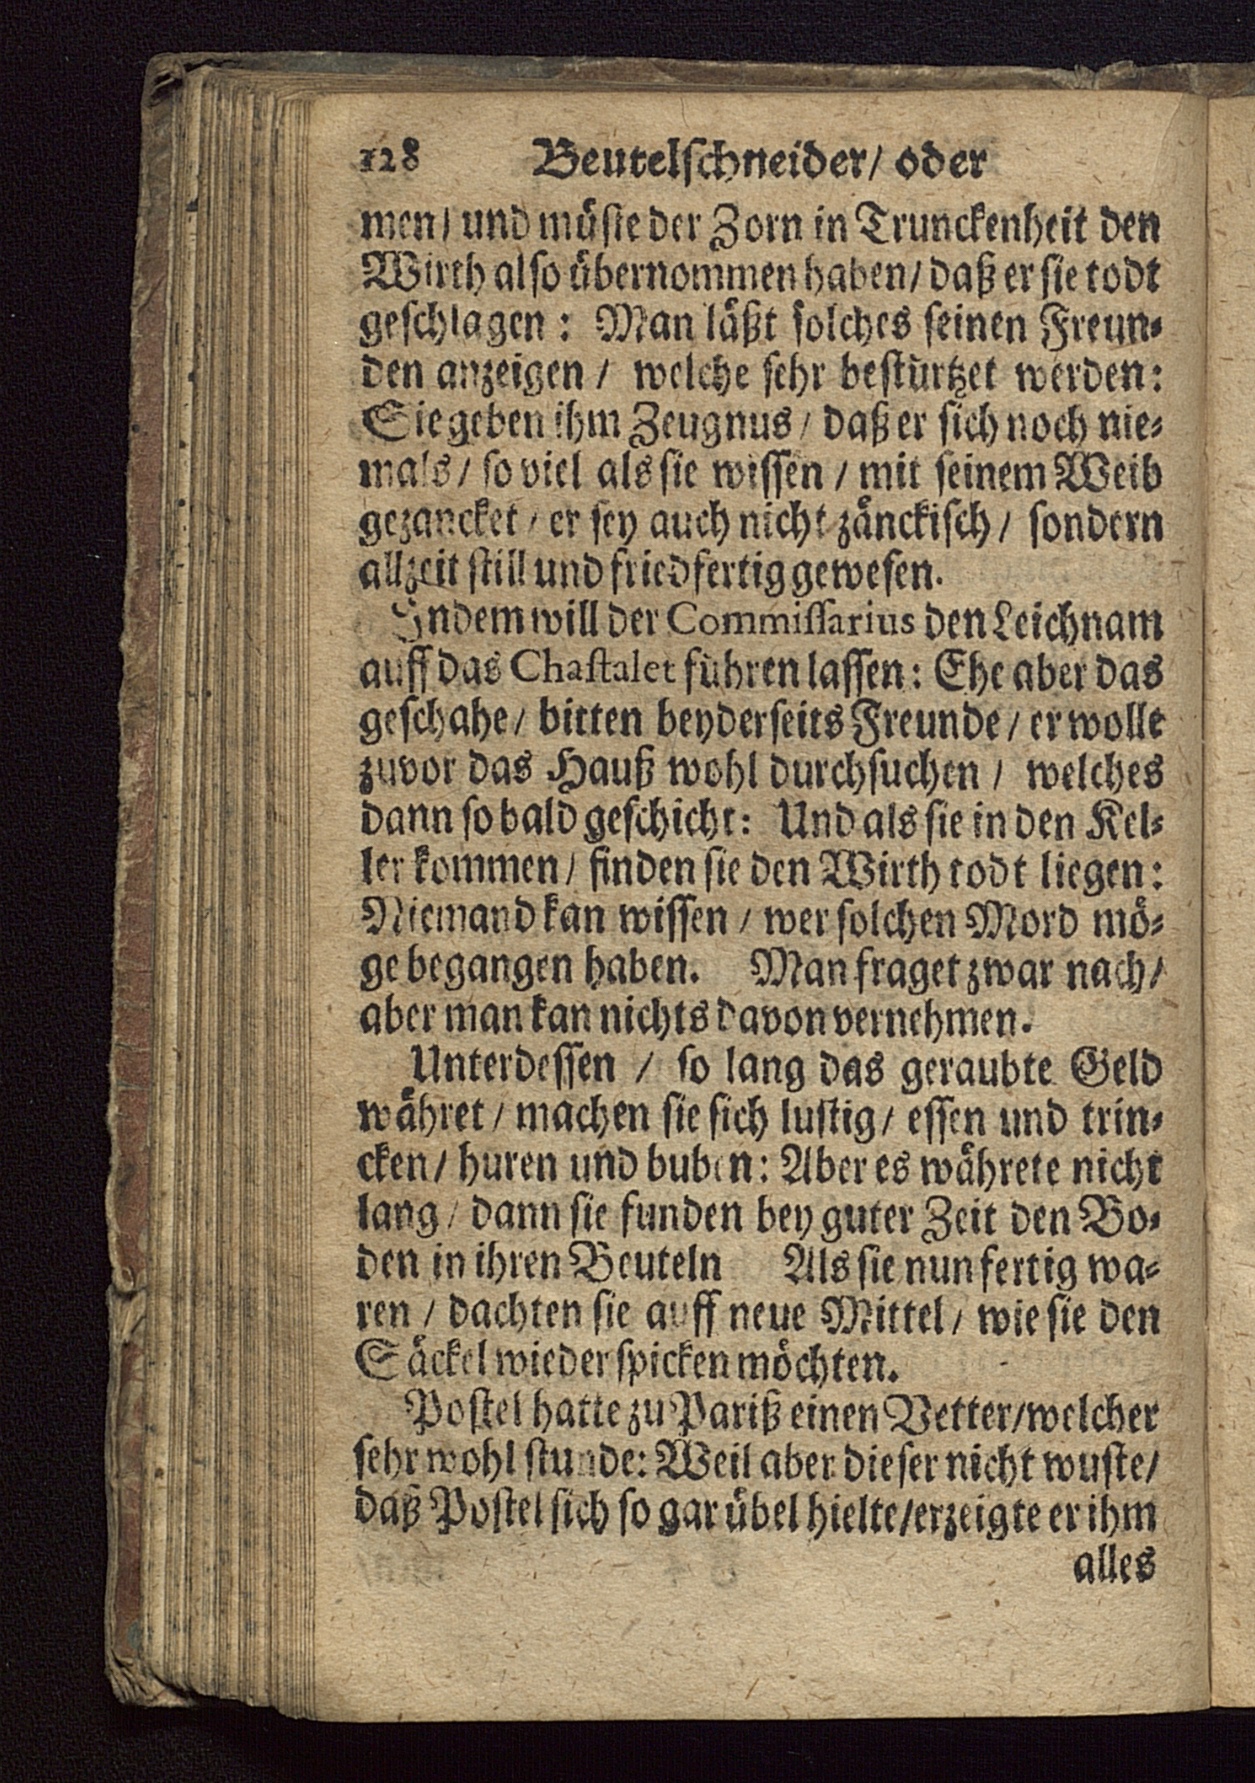 128 Beutelschneider/ oder
men/ und müste der Zorn in Trunckenheit den
Wirth also übernommen haben/ daß er sie todt
geschlagen: Man läßt solches seinen Freun-
den anzeigen/ welche sehr bestürtzet werden:
Sie geben ihm Zeugnus/ daß er sich noch nie-
mals/ so viel als sie wissen/ mit seinem Weib
gezancket/ er sey auch nicht zänckisch/ sondern
allzeit still und friedfertig gewesen.
Indem will der Commissarius den Leichnam
auff das Chastalet führen lassen: Ehe aber das
geschahe/ bitten beyderseits Freunde/ er wolle
zuvor das Hauß wohl durchsuchen/ welches
dann so bald geschicht: Und als sie in den Kel-
ler kommen/ finden sie den Wirth todt liegen:
Niemand kan wissen/ wer solchen Mord mö-
ge begangen haben. Man fraget zwar nach/
aber man kan nichts davon vernehmen.
Unterdessen/ so lang das geraubte Geld
währet/ machen sie sich lustig/ essen und trin-
cken/ huren und buben: Aber es währete nicht
lang/ dann sie funden bey guter Zeit den Bo-
den in ihren Beuteln Als sie nun fertig wa-
ren/ dachten sie auff neue Mittel/ wie sie den
Säckel wieder spicken möchten.
Postel hatte zu Pariß einen Vetter/ welcher
sehr wohl stunde: Weil aber dieser nicht wuste/
daß Postel sich so gar übel hielte/ erzeigte er ihm
alles